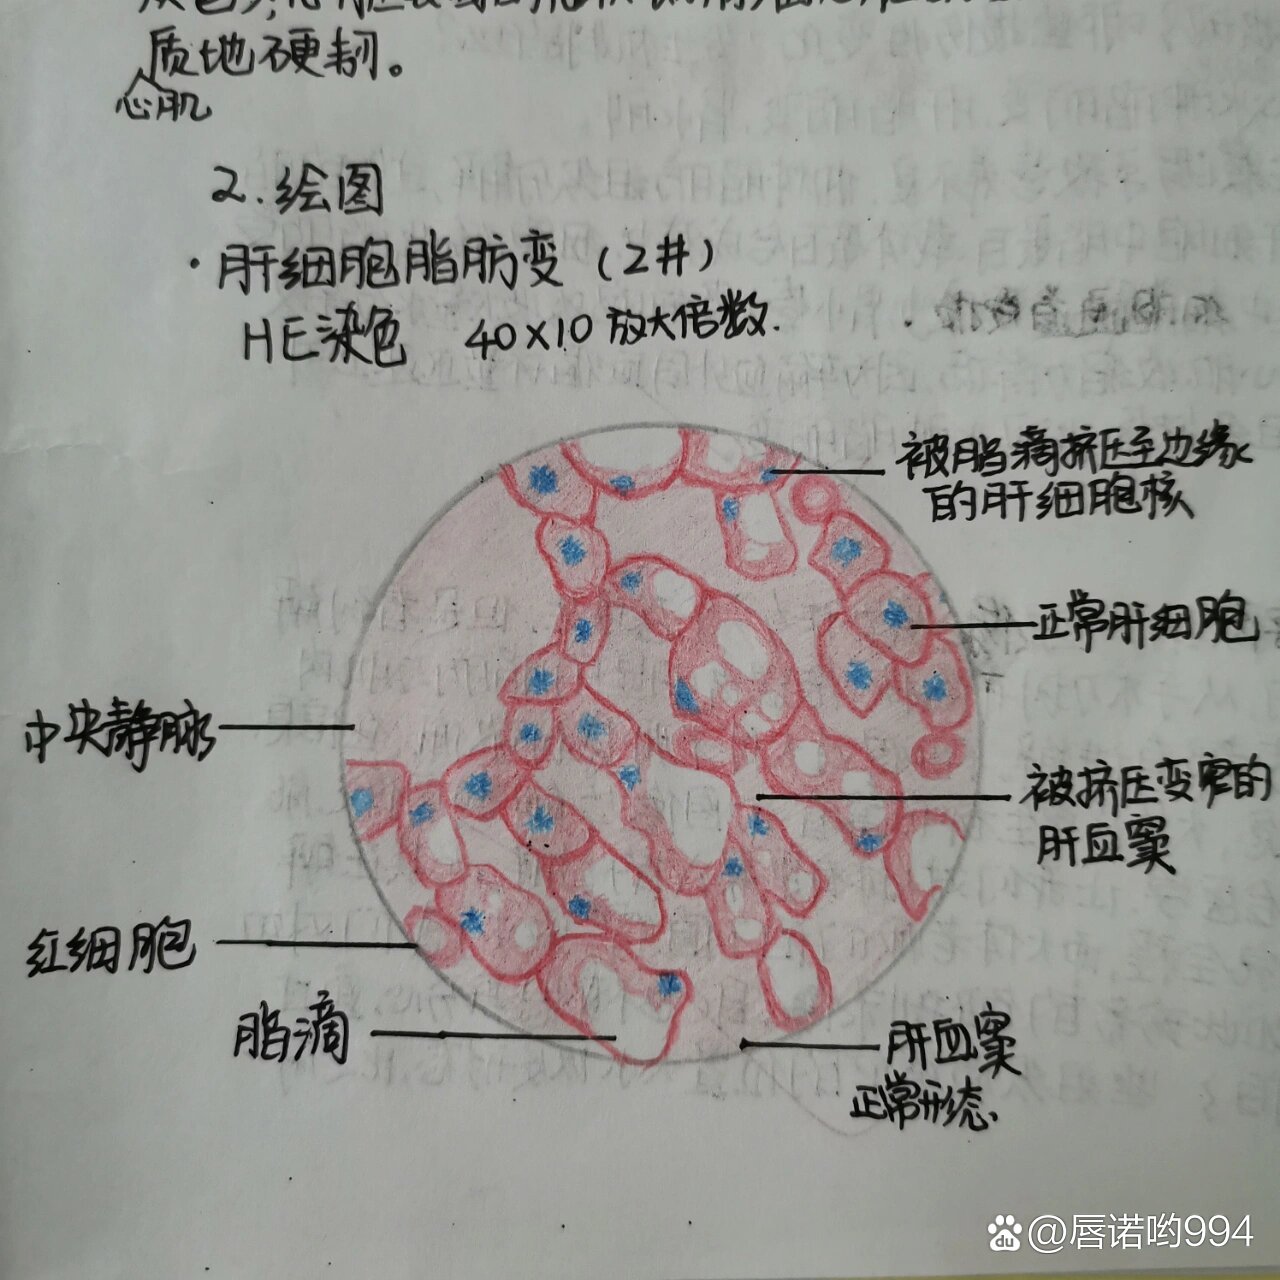 质地硬韧。
心肌
2.绘图
·肝细胞脂肪变(2#)
HE染色 40×10放大倍数.
被脂滴挤压至边缘
的肝细胞核
正常肝细胞
中央静脉
被挤压变窄的
肝血窦
红细胞
脂滴
肝血窦
正常形态.
du @唇诺哟994